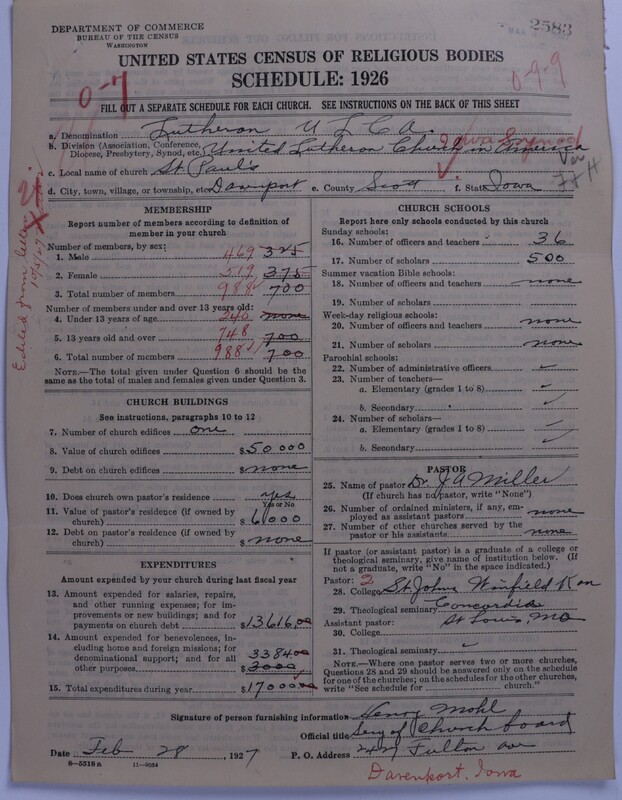 DEPARTMENT OF COMMERCE
BUREAU OF THE CENSUS
WASHINGTON
2583
UNITED STATES CENSUS OF RELIGIOUS BODIES
SCHEDULE: 1926
0-7
0-9-9
FILL OUT A SEPARATE SCHEDULE FOR EACH CHURCH. SEE INSTRUCTIONS ON THE BACK OF THIS SHEET
a. Denomination Lutheran U L C A.
b. Division (Association, Conference, Diocese, Presbytery, Synod, etc.) United Lutheran Church in America Iowa Synod
c. Local name of church St Pauls
d. City, town, village, or township, etc. Davenport e. County Scott f. State Iowa
Edited from letter
MEMBERSHIP
Report number of members according to definition of
member in your church
Number of members, by sex:
1. Male 469 325
2. Female 519 375
3. Total number of members 988 700
Number of members under and over 13 years old:
4. Under 13 years of age 240 none
5. 13 years old and over 748 700
6. Total number of members 988 700
NOTE.—The total given under Question 6 should be
same as the total of males and females given under Question 3.
CHURCH BUILDINGS
See instructions, paragraphs 10 to 12
7. Number of church edifices one
8. Value of church edifices $50000
9. Debt on church edifices $none
10. Does church own pastor's residence yes
Yes or No
11. Value of pastor's residence (if owned by
church) $6000
12. Debt on pastor's residence (if owned by
church) $none
EXPENDITURES
Amount expended by your church during last fiscal year
13. Amount expended for salaries, repairs,
and other running expenses; for im-
provements or new buildings; and for
payments on church debt $13616.00
14. Amount expended for benevolences, in-
cluding home and foreign missions; for
denominational support; and for all
other purposes 3384.00 $3000
15. Total expenditures during year $17000.00
CHURCH SCHOOLS
Report here only schools conducted by this church
Sunday schools:
16. Number of officers and teachers 36
17. Number of scholars 500
Summer vacation Bible schools:
18. Number of officers and teachers none
19. Number of scholars
Week-day religious schools:
20. Number of officers and teachers none
21. Number of scholars none
Parochial schools:
22. Number of administrative officers
23. Number of teachers—
a. Elementary (grades 1 to 8)
b. Secondary
24. Number of scholars—
a. Elementary (grades 1 to 8)
b. Secondary
PASTOR
25. Name of pastor Dr. J A Miller
(If church has no pastor, write "None")
26. Number of ordained ministers, if any, em-
ployed as assistant pastors none
27. Number of other churches served by the
pastor or his assistants none
If pastor (or assistant pastor) is a graduate of a college or
theological seminary, give name of institution below. (If
not a graduate, write "No" in the space indicated.)
Pastor: 2
28. College St Johns Winfield Kan
29. Theological seminary Concordia
Assistant pastor: St Louis, Mo
30. College
31. Theological seminary
NOTE.—Where one pastor serves two or more churches,
Questions 28 and 29 should be answered only on the schedule
for one of the churches; on the schedules for the other churches,
write "See schedule for church."
Signature of person furnishing information Henry Mohl
Official title Secy of Church board
Date Feb 28, 1927 P. O. Address Fulton ave
8-5518a 11-9034
Davenport, Iowa